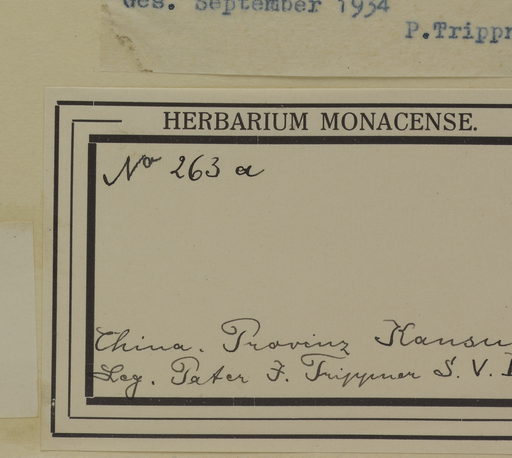 Ges. September 1934
P. Trippn
HERBARIUM MONACENSE.
No 263 a
China. Provinz Kansu
Leg. Pater F. Trippner S. V. D